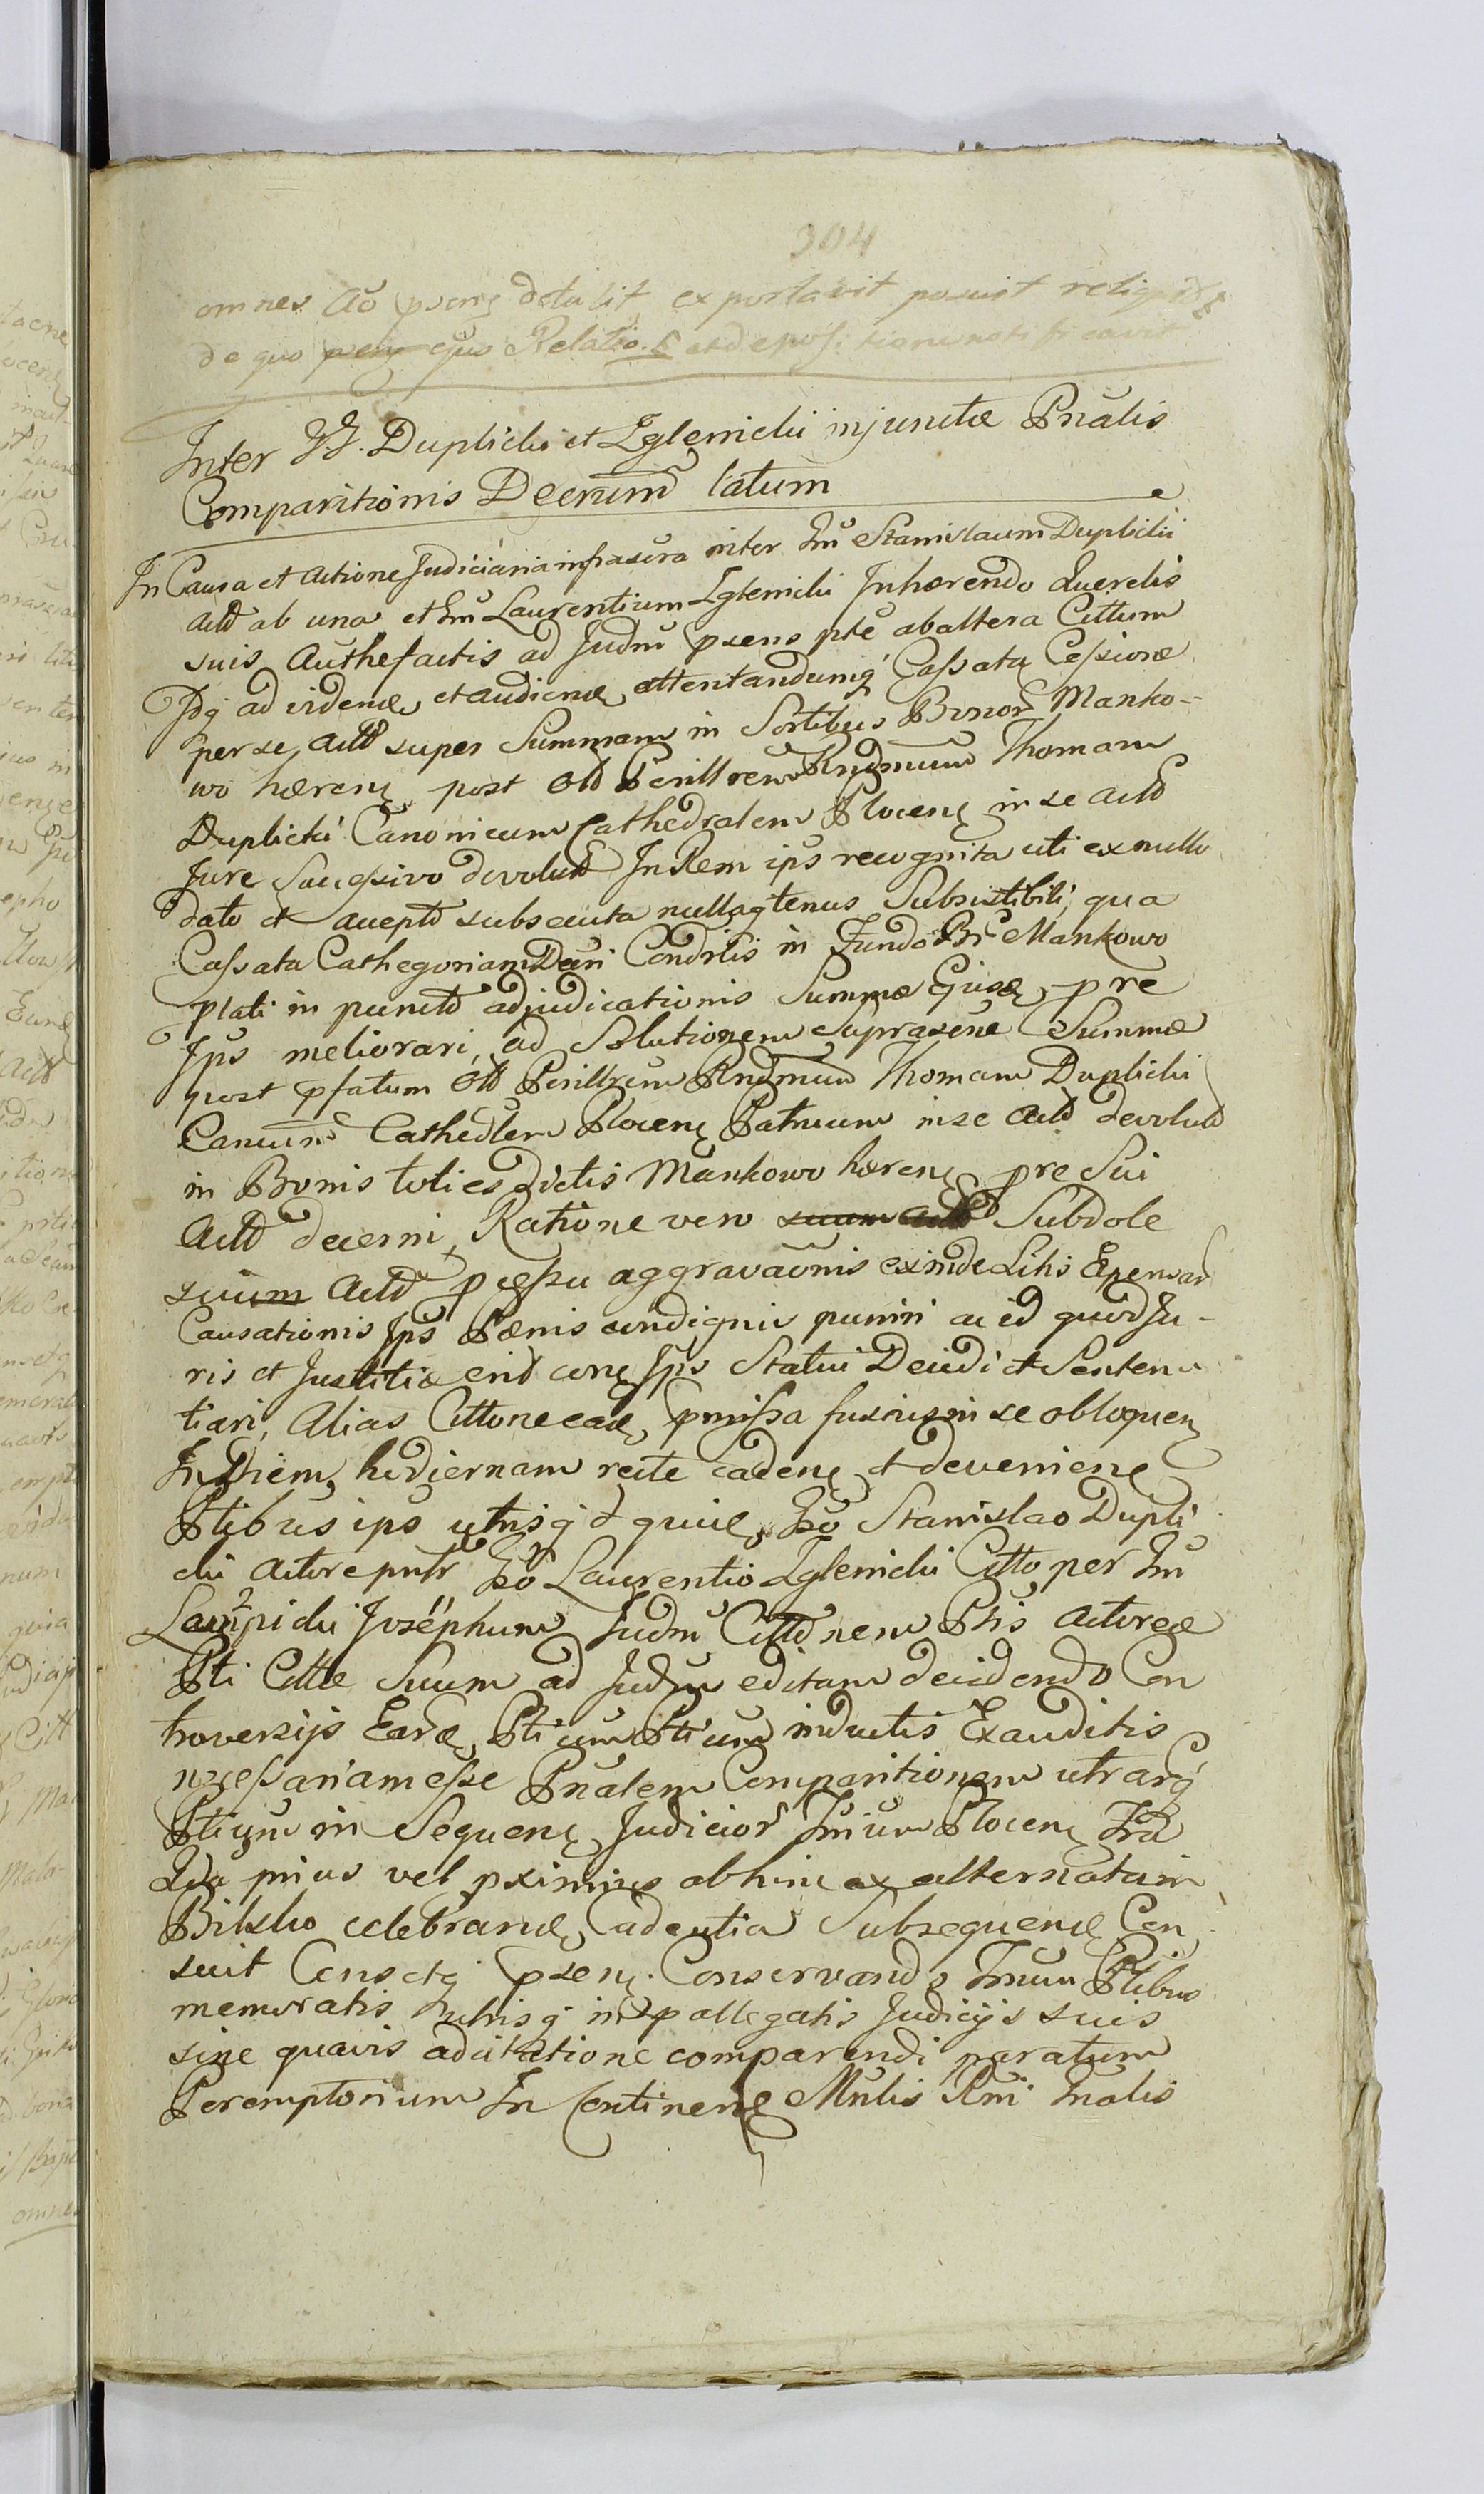 304
omnes Ao psens detulit exportavit posuit reliqit
de quo pseng ejus Relatio. E et depositionu notificavit
Inter JJ. Duplicki et Zglenicki injunctæ Pnalis
Comparitionis Decrum latum
In Causa et Actione Judiciaria infrascra inter Im Stanislaum Duplicki
Actd ab una et Im Laurentium Zglenicki Inhærendo Querelis
suis Authefactis ad Judm psens pte ab altera Cittum
Ipg ad videnđ et audienđ attentandumq Cassata Cessionæ
per se Actd super Summam in Sortibus Bonor Manko-
wo hæreng post Old Perillrem Rndmum Thomam
Duplicki Canonicum Cathedralem Ploceng in se Actd
Jure Successivo devolutd In Rem ips recognita uti ex nullo
dato et accepto subsecuta nullaqtenus Subsistibili, qua
Cassata Cathegoriam Decri Condrlis in Fundo Br Mankowo
plati in puncto adjudicationis Summæ Ejusđ pre
Ips meliorari, ad Solutionem Suprascne Summæ
post pfatum Old Perillrem Rndmum Thomam Duplicki
Canicum Cathedlem Ploceng Patruum in se Actd devolutd
in Bonis toties dictis Mankowo hæreng pre Sui
Actd decerni, Ratione vero suum Actd Subdole
suum Actd pcessu aggravaonis exinde Litis Expensar
Causationis Ips Pænis condignis puniri ac id quod Ju-
ris et Justitiæ erit cong Ips Statui Decidi et Senten
tiari, Alias Cittone eađ pmissa fusius in se obloqueng
In Diem hodiernam recte cadeng et deveniene
Ptibus ips utrisq
Stanislao Dupli
cki Actore pntr Iso Laurentio Zglenicki Citto per Im
Lampicki Josephum Judm Cittdnem Ptis Actoreæ
Pti Cittæ Suum ad Judm editam decidendo Con
troversijs Earđ Ptium Ptium inductis Exauditis
necessariam esse Pnalem Comparitionem utrarq
Ptium in Sequeng Judicior Tmium Ploceng
prius vel pximius abhinc ex alternatain
Bilsko celebranđ Cadentia Subsequenđ Cen
suit Censetq pseng. Conservando Tmum Ptibus
memoratis utrisq in pallegatis Judicijs suis
sine quavis adcitatione comparendi paratum
Peremptorium In Contineng Mnlis Rmi Tnalis